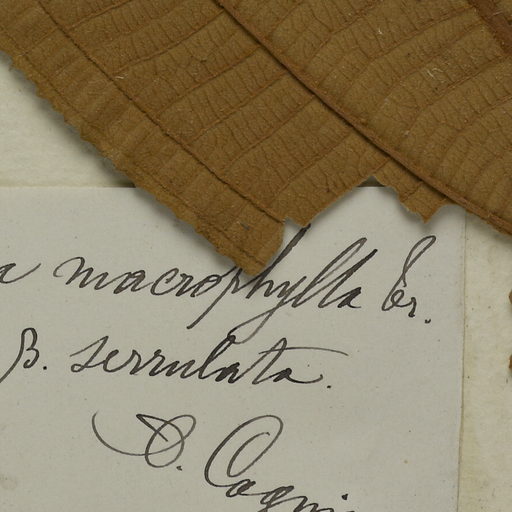 a macrophylla Tr.
β. serrulata.
A. Cogni